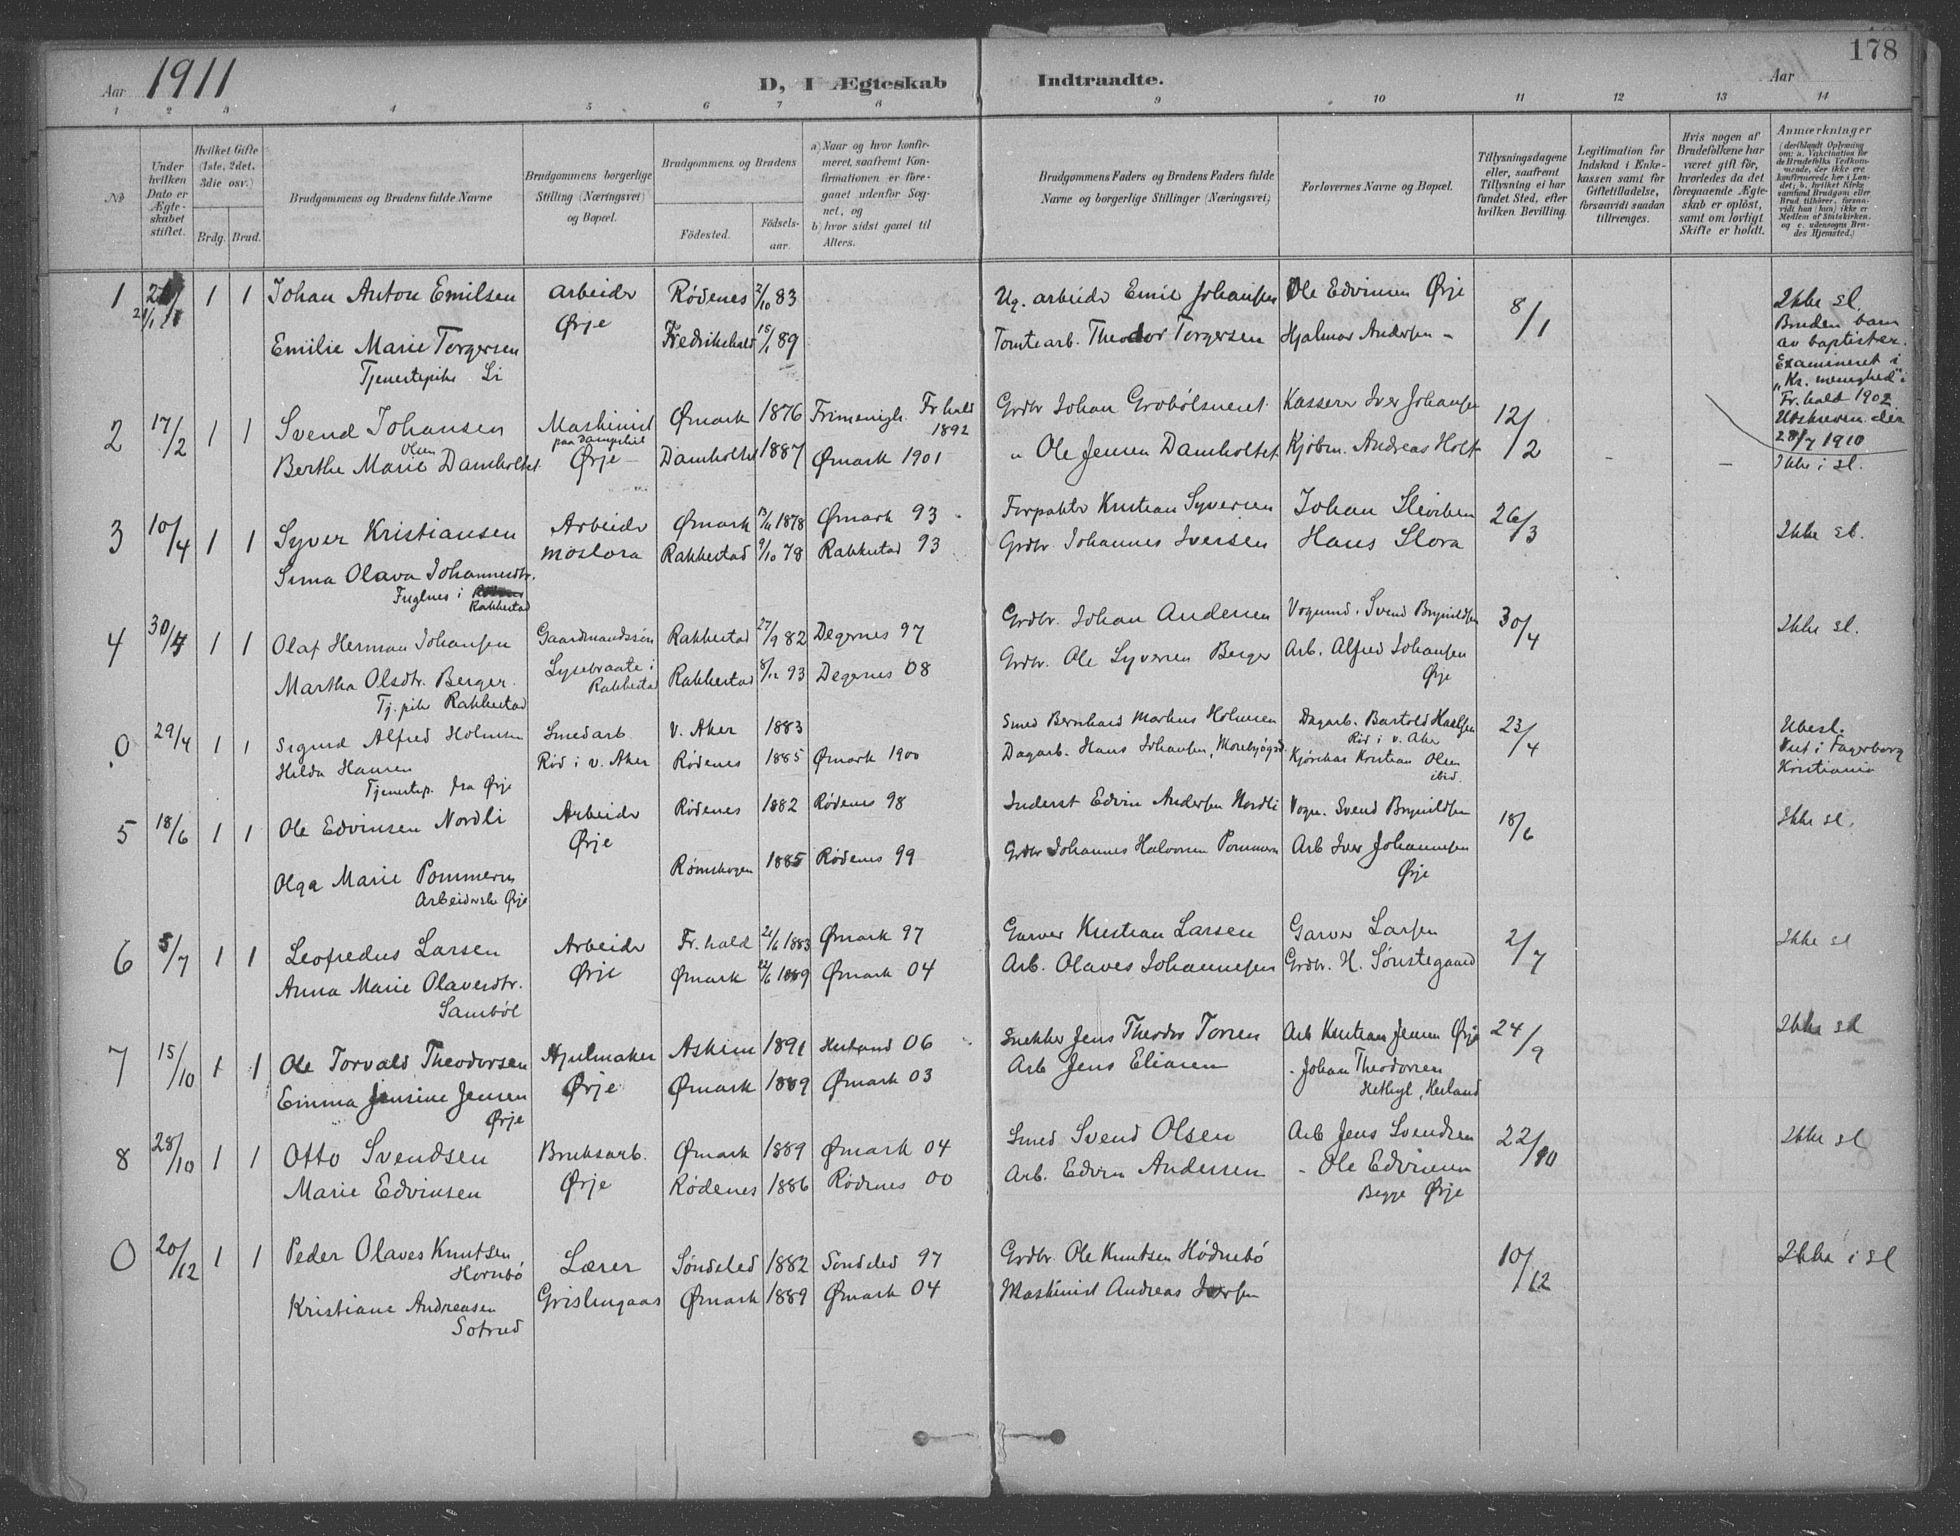 178
Aar 1911
D, I Ægteskab Indtraadte.
Aar
1 2 3 4 5 6 7 8 9 10 11 12 13 14
No
Under hvilken Dato er Ægteskabet stiftet.
Hvilket Gifte (1ste, 2det, 3die osv.)
Brdg. Brud.
Brudgommens og Brudens fulde Navne
Brudgommens borgerlige Stilling (Næringsvei) og Bopæl.
Brudgommens og Brudens
Fødested. Fødselsaar.
a) Naar og hvor konfirmeret, saafremt Konfirmationen er foregaaet udenfor Sognet, og
b) hvor sidst gaaet til Alters.
Brudgommens Faders og Brudens Faders fulde Navne og borgerlige Stillinger (Næringsvei)
Forlovernes Navne og Bopæl.
Tillysningsdagene eller, saafremt Tillysning ei har fundet Sted, efter hvilken Bevilling.
Legitimation for Indskud i Enkekassen samt for Giftetilladelse, forsaavidt saadan tiltrænges.
Hvis nogen af Brudefolkene har været gift før, hvorledes da det foregaaende Ægteskab er opløst, samt om lovligt Skifte er holdt.
Anmærkninger (deriblandt Oplysning om: a. Vakcination for de Brudefolks Vedkommende, der ikke ere konfirmerede her i Landet; b. hvilket Kirkesamfund Brudgom eller Brud tilhører, forsaavidt han (hun) ikke er Medlem af Statskirken, og c. udensogns Brudes Hjemsted.)
1 1 1 Johan Anton Emilsen Arbeider Rødenes 2/10 83 Ug. arbeider Emil Johansen Ole Edvinsen Ørje 8/1 Ikke sl.
Ørje
Emilie Marie Torgersen Fredrikshald 15/1 89 Tomtearb. Theodor Torgersen Hjalmar Andersen -
Tjenestepike Li
Bruden barn
av baptister.
Examineret i
"Kr. menighed" i
Fr.hald 1902
Utskreven der
28/7 1910
2 17/2 1 1 Svend Johansen Maskinist Ømark 1876 Frimenigh. Fr.hald 1892 Grdbr Johan Grobølsneset Kasserer Iver Johansen 12/2 - -
paa dampskib
Olsen
Berthe Marie Damholtet Ørje - Damholtet 1887 Ømark 1901 " Ole Jensen Damholtet Kjøbm. Andreas Holt
Ikke i sl.
3 10/4 1 1 Syver Kristiansen Arbeider Ømark 13/11 1878 Ømark 93 Forpakter Kristian Syversen Johan Sleviken 26/3 Ikke sl.
Moslora Rakkestad 9/10 78 Rakkestad 93 Grdbr. Johannes Iversen Hans Slora
Sina Olava Johannesdtr.
Fuglnes i
Rakkestad
4 30/4 1 1 Olaf Herman Johansen Gaardmandssøn Rakkestad 27/9 82 Degernes 97 Grdbr. Johan Andersen Vognmd. Svend Brynildsen 30/4 Ikke sl.
Martha Olsdtr. Berger Lysebraate i Rakkestad Rakkestad 8/12 93 Degernes 08 Grdbr. Ole Syversen Berger Arb. Alfred Johansen
Ørje
Tj.pike Rakkestad
0 29/4 1 1 Sigurd Alfred Holmsen Smedarb V. Aker 1883 Smed Bernhard Martins Holmsen Dagarb. Bartold Haalsen 23/4 Ubesl.
Rød i v. Aker
Hilda Hansen Rød i v. Aker Rødenes 1885 Ømark 1900 Dagarb. Hans Johansen, Kristian Olsen
ibid.
Tjenestep. fra Ørje
Viet i Fagerborg
Kristiania
5 18/6 1 1 Ole Edvinsen Nordli Arbeider Rødenes 1882 Rødenes 98 Inderst Edvin Andersen Nordli Vogn. Svend Brynildsen 18/6 Ikke sl.
Ørje
Olga Marie Pommeren Rømskogen 1885 Rødenes 99 Grdbr Johannes Halvorsen Pommern Arb Iver Johannesen
Ørje
Arbeiderske Ørje
6 5/7 1 1 Leofredus Larsen Arbeider Fr.hald 21/6 1883 Ømark 97 Garver Kristian Larsen Garver Larsen 2/7 Ikke sl
Anna Marie Olavesdtr. Ørje Ømark 22/6 1889 Ømark 04 Arb. Olaves Johannesen Grdbr. H. Sønstegaard
Sambøl
7 15/10 1 1 Ole Torvald Theodorsen Hjulmaker Askim 1891 Herland 06 Snekker Jens Theodor Torsen Arb Kristian Jensen Ørje 24/9 Ikke sl
Emma Jensine Jensen Ørje Ømark 1889 Ømark 03 Arb Jens Eliasen - Johan Theodorsen
Ørje
Herland
8 28/10 1 1 Otto Svendsen Bruksarb. Ømark 1889 Ømark 04 Smed Svend Olsen Arb Jens Svendsen 22/10 Ikke sl
Marie Edvinsen Ørje Rødenes 1886 Rødenes 00 Arb. Edvin Andersen - Ole Edvinsen
Begge Ørje
0 20/12 1 1 Peder Olaves Knutsen Lærer Søndeled 1882 Søndeled 97 Grdbr. Ole Knutsen Hødnebø 10/12 Ikke i sl
Hornbø
Kristiane Andreasen Grislingaas Ømark 1889 Ømark 04 Maskinist Andreas Iversen
Sotrud